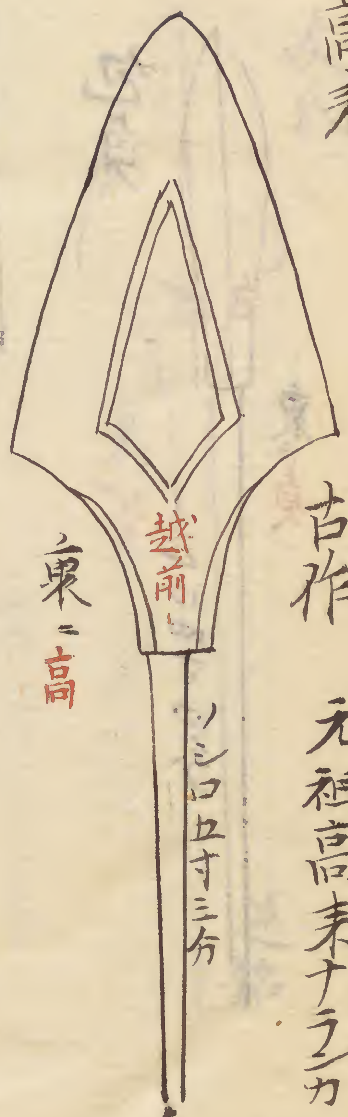 高
古作　元祖高耒ナランカ
越前
ノシロ五寸三分
裏ニ高